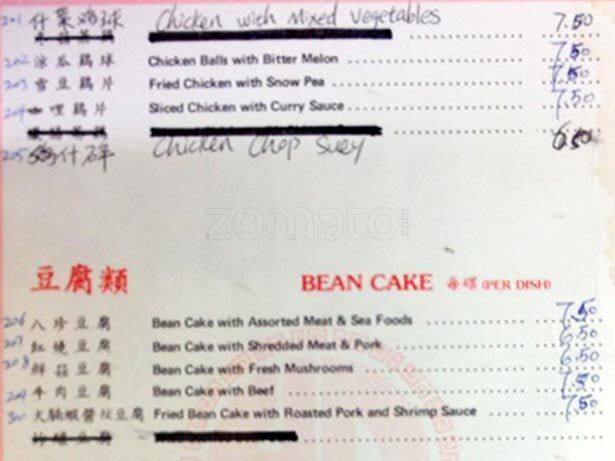 201 什菜鸡球 Chicken with Mixed Vegetables 7.50
202 涼瓜鷄球 Chicken Balls with Bitter Melon 7.50
203 雪豆鷄片 Fried Chicken with Snow Pea 7.50
204 咖哩鷄片 Sliced Chicken with Curry Sauce 7.50
205 什碎 Chicken Chop Suey 6.50
zomato.com
豆腐類 BEAN CAKE 每碟 (PER DISH)
206 八珍豆腐 Bean Cake with Assorted Meat & Sea Foods 7.50
207 紅燒豆腐 Bean Cake with Shredded Meat & Pork 6.50
208 鮮菇豆腐 Bean Cake with Fresh Mushrooms 6.50
209 牛肉豆腐 Bean Cake with Beef 7.50
火腩蝦醬炆豆腐 Fried Bean Cake with Roasted Pork and Shrimp Sauce 7.50